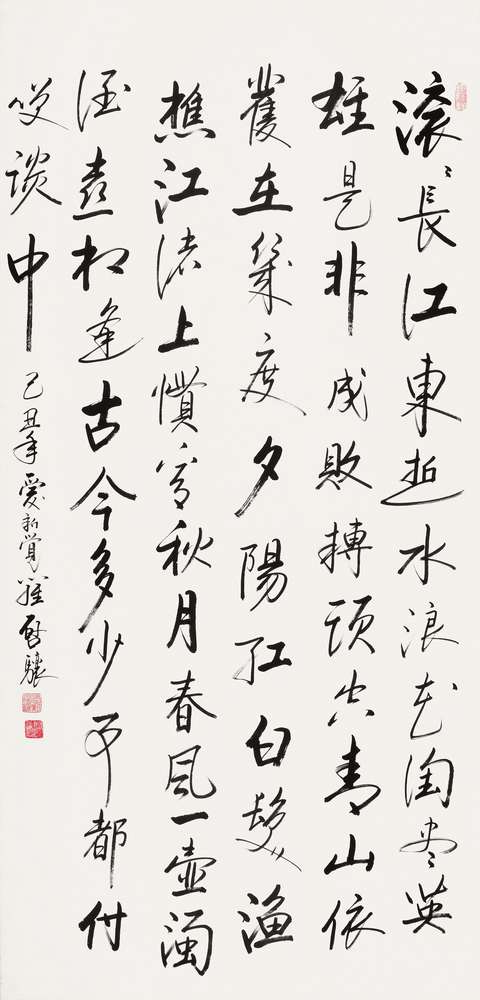 滾〻長江東逝水浪花淘盡英
雄是非成敗轉頭空青山依
舊在幾度夕陽紅白髮漁
樵江渚上慣看秋月春風一壺濁
酒喜相逢古今多少事都付
笑談中 己丑年愛新覺羅啟驤